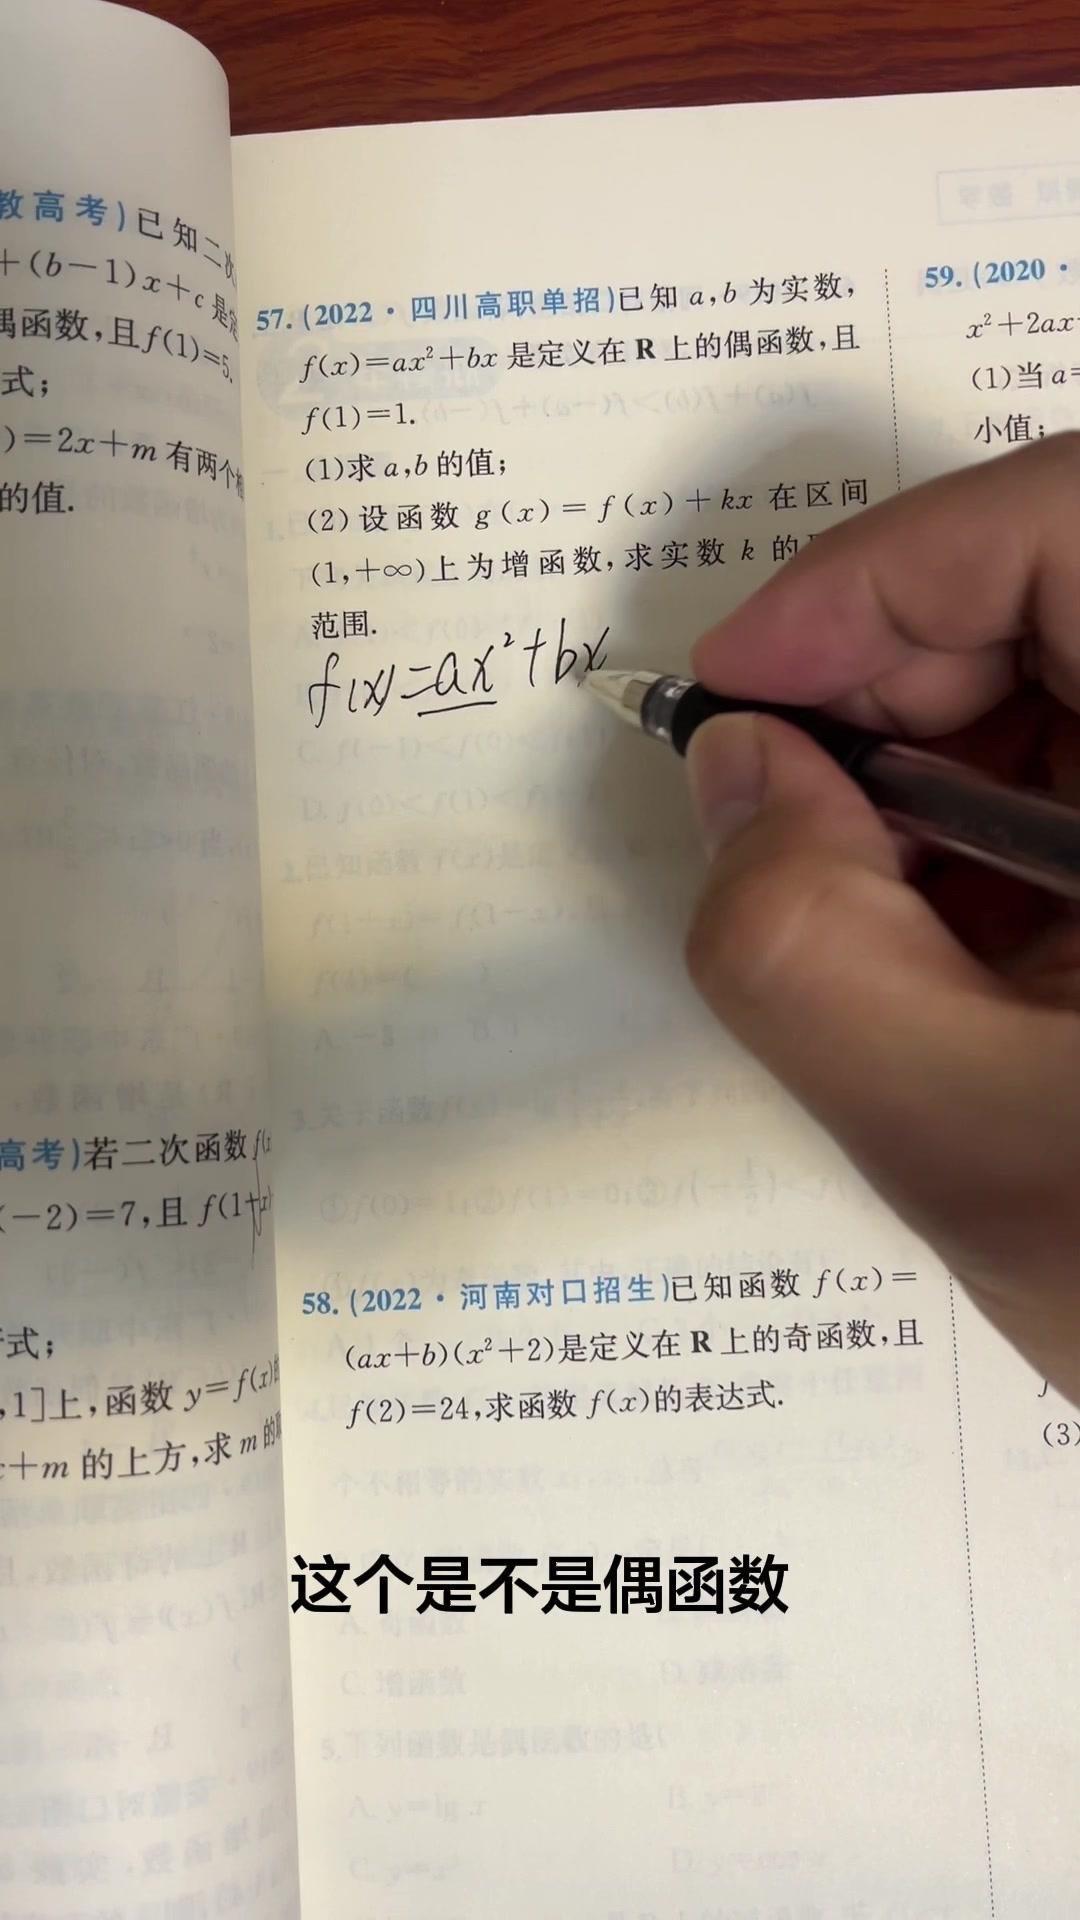 教高考)已知二次
+(b-1)x+c是定
偶函数,且f(1)=5.
式;
)=2x+m有两个相
的值.
高考)若二次函数f(x
(-2)=7,且f(1+x)
式;
,1]上,函数y=f(x)的
x+m的上方,求m的取
57.(2022·四川高职单招)已知a,b为实数,
f(x)=ax²+bx是定义在R上的偶函数,且
f(1)=1.
(1)求a,b的值;
(2)设函数g(x)=f(x)+kx在区间
(1,+∞)上为增函数,求实数k的
范围.
f(x)=ax²+bx
58.(2022·河南对口招生)已知函数f(x)=
(ax+b)(x²+2)是定义在R上的奇函数,且
f(2)=24,求函数f(x)的表达式.
59.(2020·
x²+2ax
(1)当a=
小值;
(3)
这个是不是偶函数